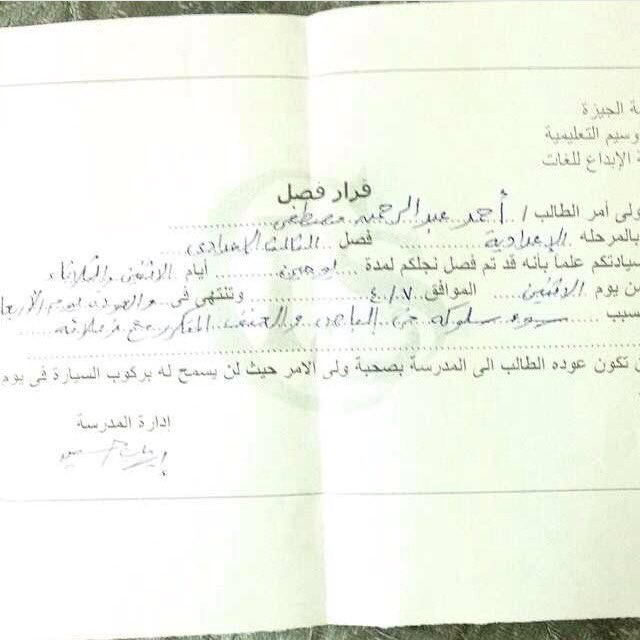 ة الجيزة
وسيم التعليمية
ة الإبداع للغات
قرار فصل
ولى أمر الطالب / أحمد عبدالرحمن مصطفى
بالمرحله الإعدادية فصل الثالث الإعدادى
سيادتكم علما بأنه قد تم فصل نجلكم لمدة يومين أيام الاثنين والثلاثاء
من يوم الاثنين الموافق ٤/٠٧ وتنتهى فى والعودة يوم الأربعا
سبب سوء سلوكه فى الباص والعنف المتكرر مع زملائه
ن تكون عوده الطالب الى المدرسة بصحبة ولى الامر حيث لن يسمح له بركوب السيارة فى يوم
إدارة المدرسة